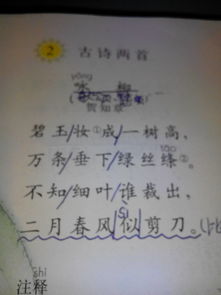 2 古诗两首
yǒng
咏 柳
贺知章
碧玉妆①成一树高，
万条垂下绿丝绦②。
tāo
不知细叶谁裁出，
二月春风似剪刀。
sì
shì
注释